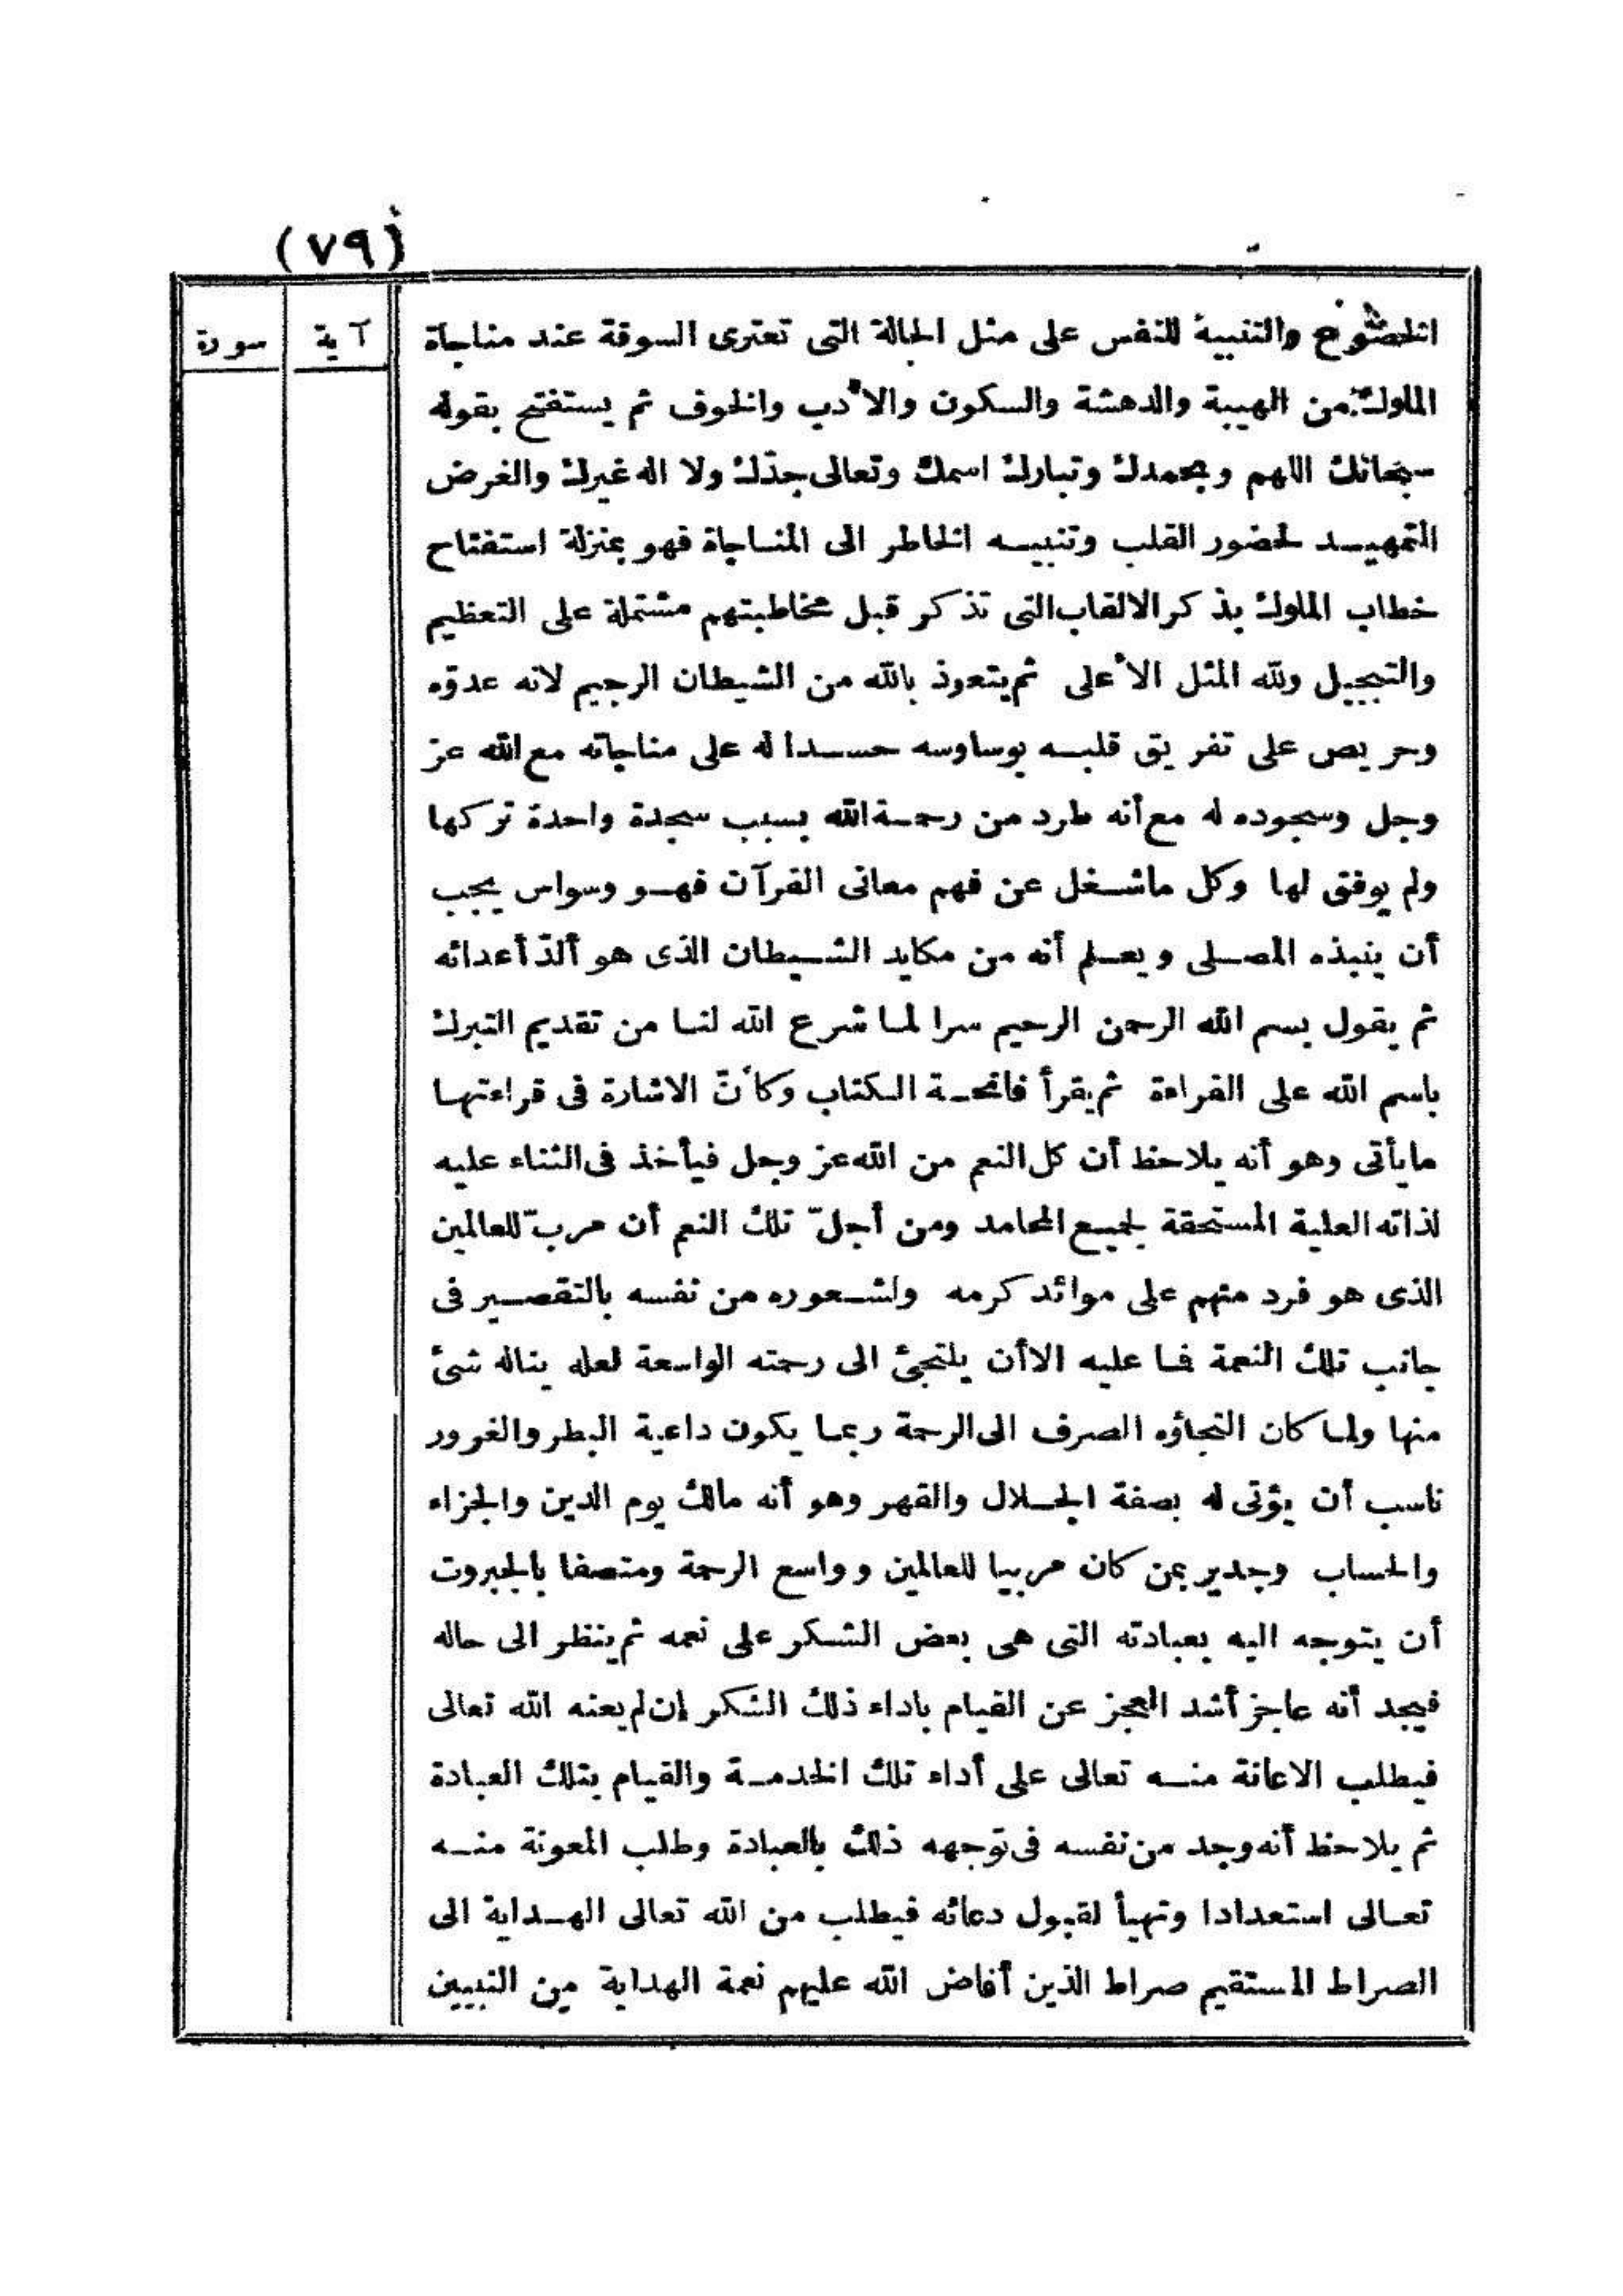 (٧٩)
آية
سورة
الخضوع والتنبيه للنفس على مثل الحالة التى تعترى السوقة عند مناجاة
الملوك من الهيبة والدهشة والسكون والأدب والخوف ثم يستفتح بقوله
سبحانك اللهم وبحمدك وتبارك اسمك وتعالى جدّك ولا اله غيرك والغرض
التمهيد لحضور القلب وتنبيه الخاطر الى المناجاة فهو بمنزلة استفتاح
خطاب الملوك بذكر الالقاب التى تذكر قبل مخاطبتهم مشتملة على التعظيم
والتبجيل ولله المثل الأعلى ثم يتعوذ بالله من الشيطان الرجيم لانه عدوّه
وحريص على تفريق قلبه بوساوسه حسدا له على مناجاته مع الله عز
وجل وسجوده له مع أنه طرد من رحمة الله بسبب سجدة واحدة تركها
ولم يوفق لها وكل ماشغل عن فهم معانى القرآن فهو وسواس يجب
أن ينبذه المصلى ويعلم أنه من مكايد الشيطان الذى هو ألدّ أعدائه
ثم يقول بسم الله الرحمن الرحيم سرا لما شرع الله لنا من تقديم التبرك
باسم الله على القراءة ثم يقرأ فاتحة الكتاب وكأنّ الاشارة فى قراءتها
مايأتى وهو أنه يلاحظ أن كل النعم من الله عز وجل فيأخذ فى الثناء عليه
لذاته العلية المستحقة لجميع المحامد ومن أجلّ تلك النعم أن مربّ للعالمين
الذى هو فرد منهم على موائد كرمه ولشعوره من نفسه بالتقصير فى
جانب تلك النعمة فما عليه الاأن يلتجئ الى رحمته الواسعة لعله يناله شئ
منها ولما كان التجاؤه الصرف الى الرحمة ربما يكون داعية البطر والغرور
ناسب أن يؤتى له بصفة الجلال والقهر وهو أنه مالك يوم الدين والجزاء
والحساب وجدير بمن كان مربيا للعالمين وواسع الرحمة ومتصفا بالجبروت
أن يتوجه اليه بعبادته التى هى بعض الشكر على نعمه ثم ينظر الى حاله
فيجد أنه عاجز أشد العجز عن القيام باداء ذلك الشكر إن لم يعنه الله تعالى
فيطلب الاعانة منه تعالى على أداء تلك الخدمة والقيام بتلك العبادة
ثم يلاحظ أنه وجد من نفسه فى توجهه ذلك بالعبادة وطلب المعونة منه
تعالى استعدادا وتهيأ لقبول دعائه فيطلب من الله تعالى الهداية الى
الصراط المستقيم صراط الذين أفاض الله عليهم نعمة الهداية من النبيين